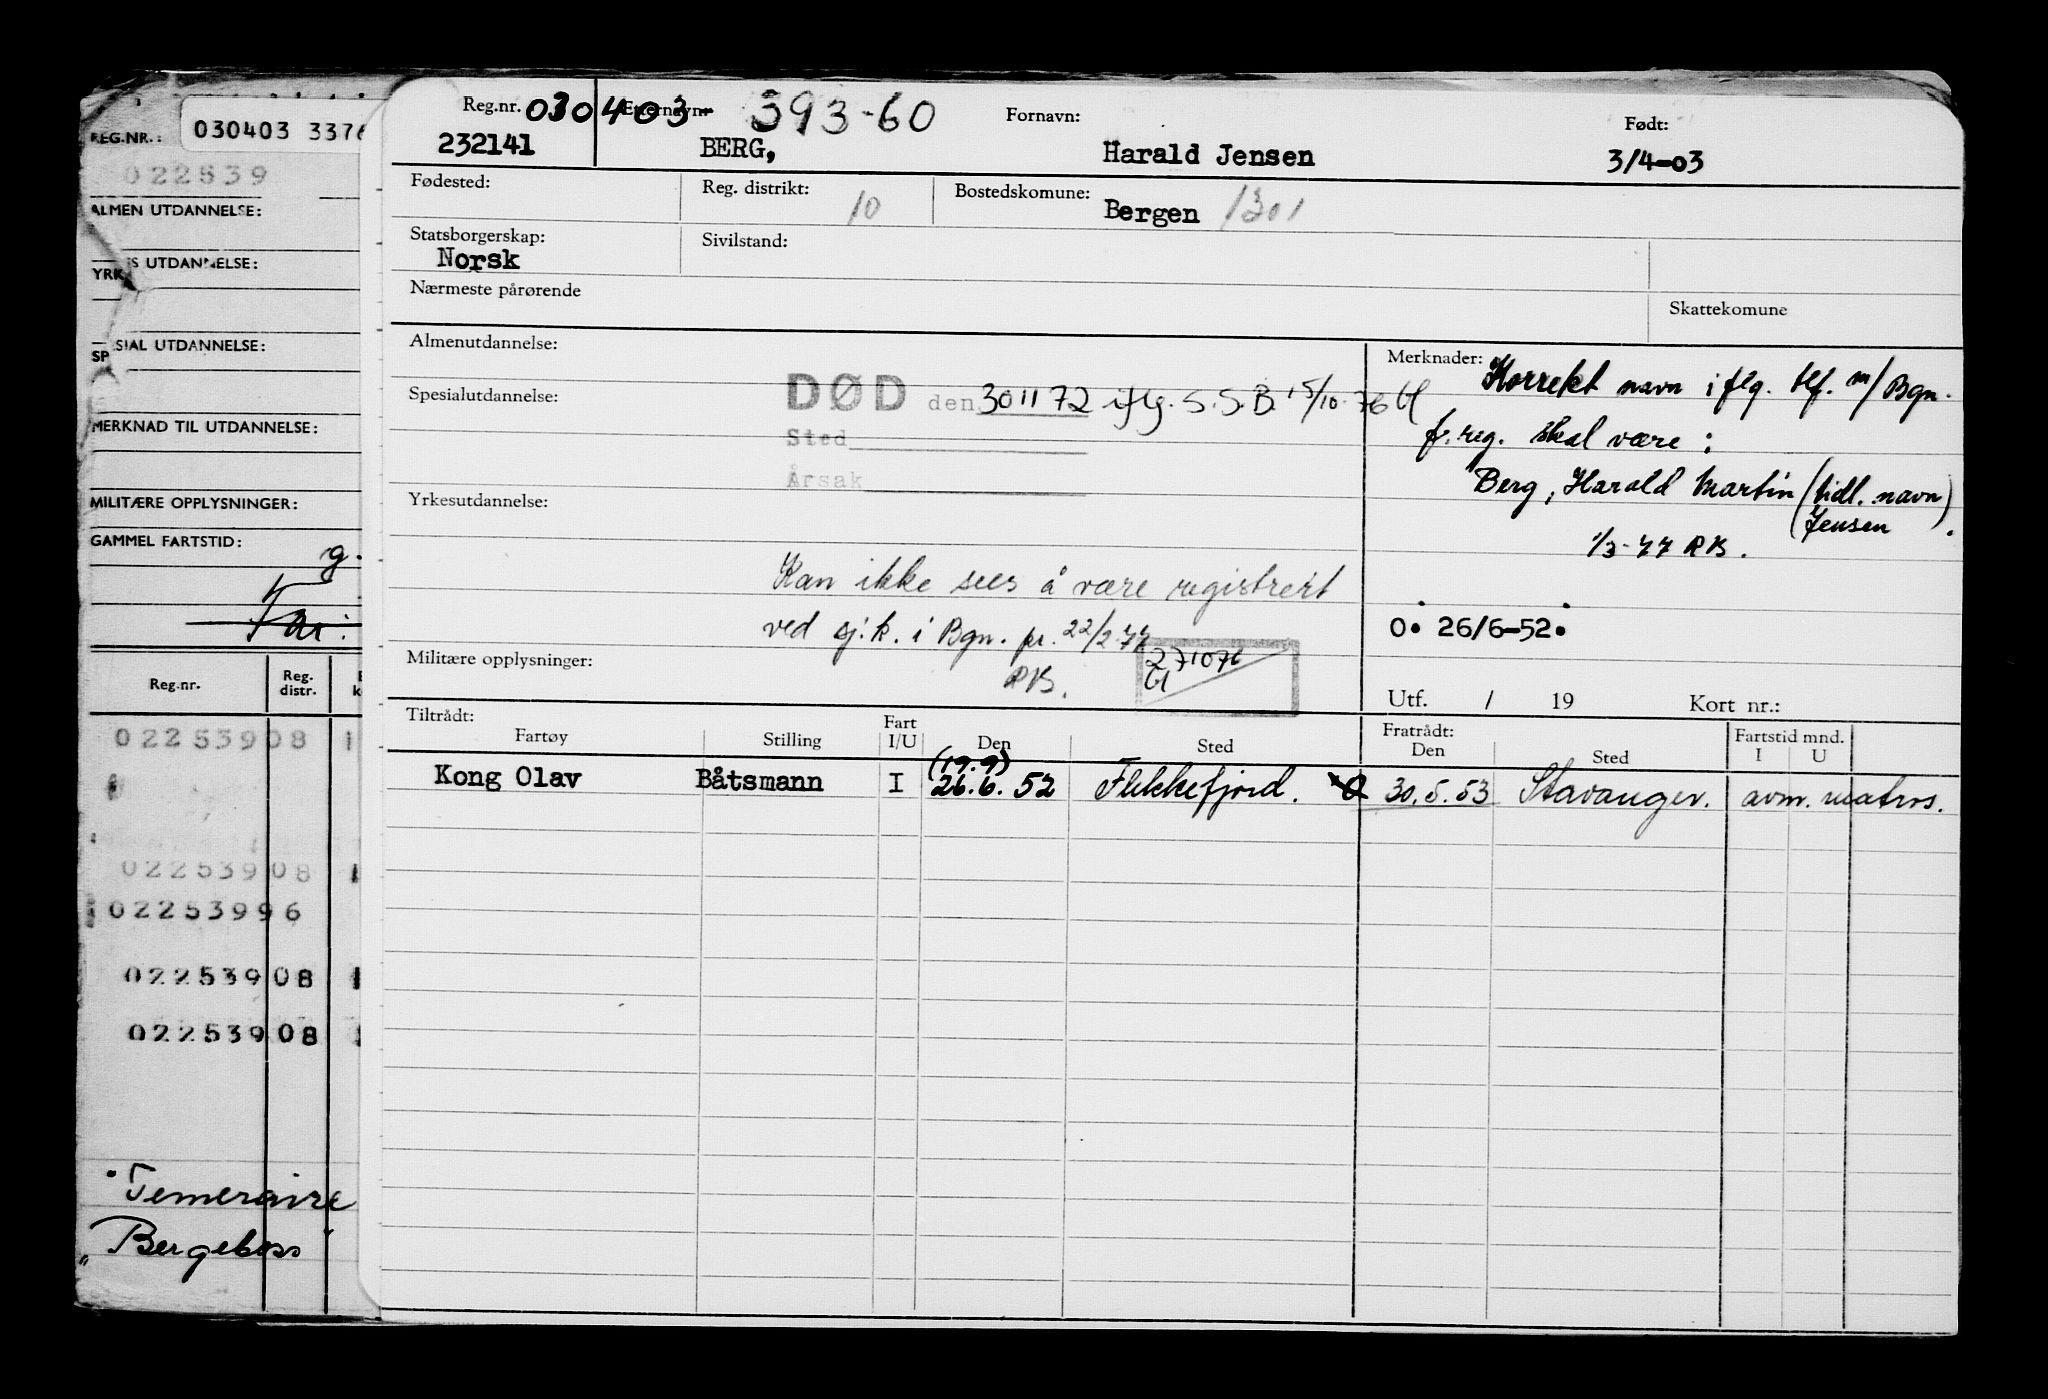 REG.NR.: 030403 3376
022539
ALMEN UTDANNELSE:
YRKES UTDANNELSE:
SPESIAL UTDANNELSE:
MERKNAD TIL UTDANNELSE:
MILITÆRE OPPLYSNINGER:
GAMMEL FARTSTID:
Reg.nr. Reg. distr.
022539 08 1
022539 08
022539 96
022539 08
022539 08
"Temeraire
"Bergeboss"
Reg.nr. 030403-39360 Etternavn: Fornavn: Født:
232141 BERG, Harald Jensen 3/4-03
Fødested: Reg. distrikt: 10 Bostedskomune: Bergen 1301
Statsborgerskap: Sivilstand:
Norsk
Nærmeste pårørende
Skattekomune
Almenutdannelse:
Merknader: Korrekt navn iflg. tlf. m/ Bgn.
Spesialutdannelse: DØD den 301172 iflg. S.S.B. 15/10-76 Gl
f. reg. skal være:
Sted
Årsak
Berg, Harald Martin (tidl. navn Jensen).
Yrkesutdannelse:
1/3-77 RB.
Kan ikke sees å være registrert
ved sj.k. i Bgn. pr. 22/2-77
RB.
O. 26/6-52.
Militære opplysninger: 271076 Gl
Utf. / 19 Kort nr.:
Tiltrådt: Fratrådt:
Fartøy Stilling Fart I/U Den Sted Den Sted Fartstid mnd. I U
(19.9)
Kong Olav Båtsmann I 26.6.52 Flekkefjord. 30.5.53 Stavanger. avm. matros.